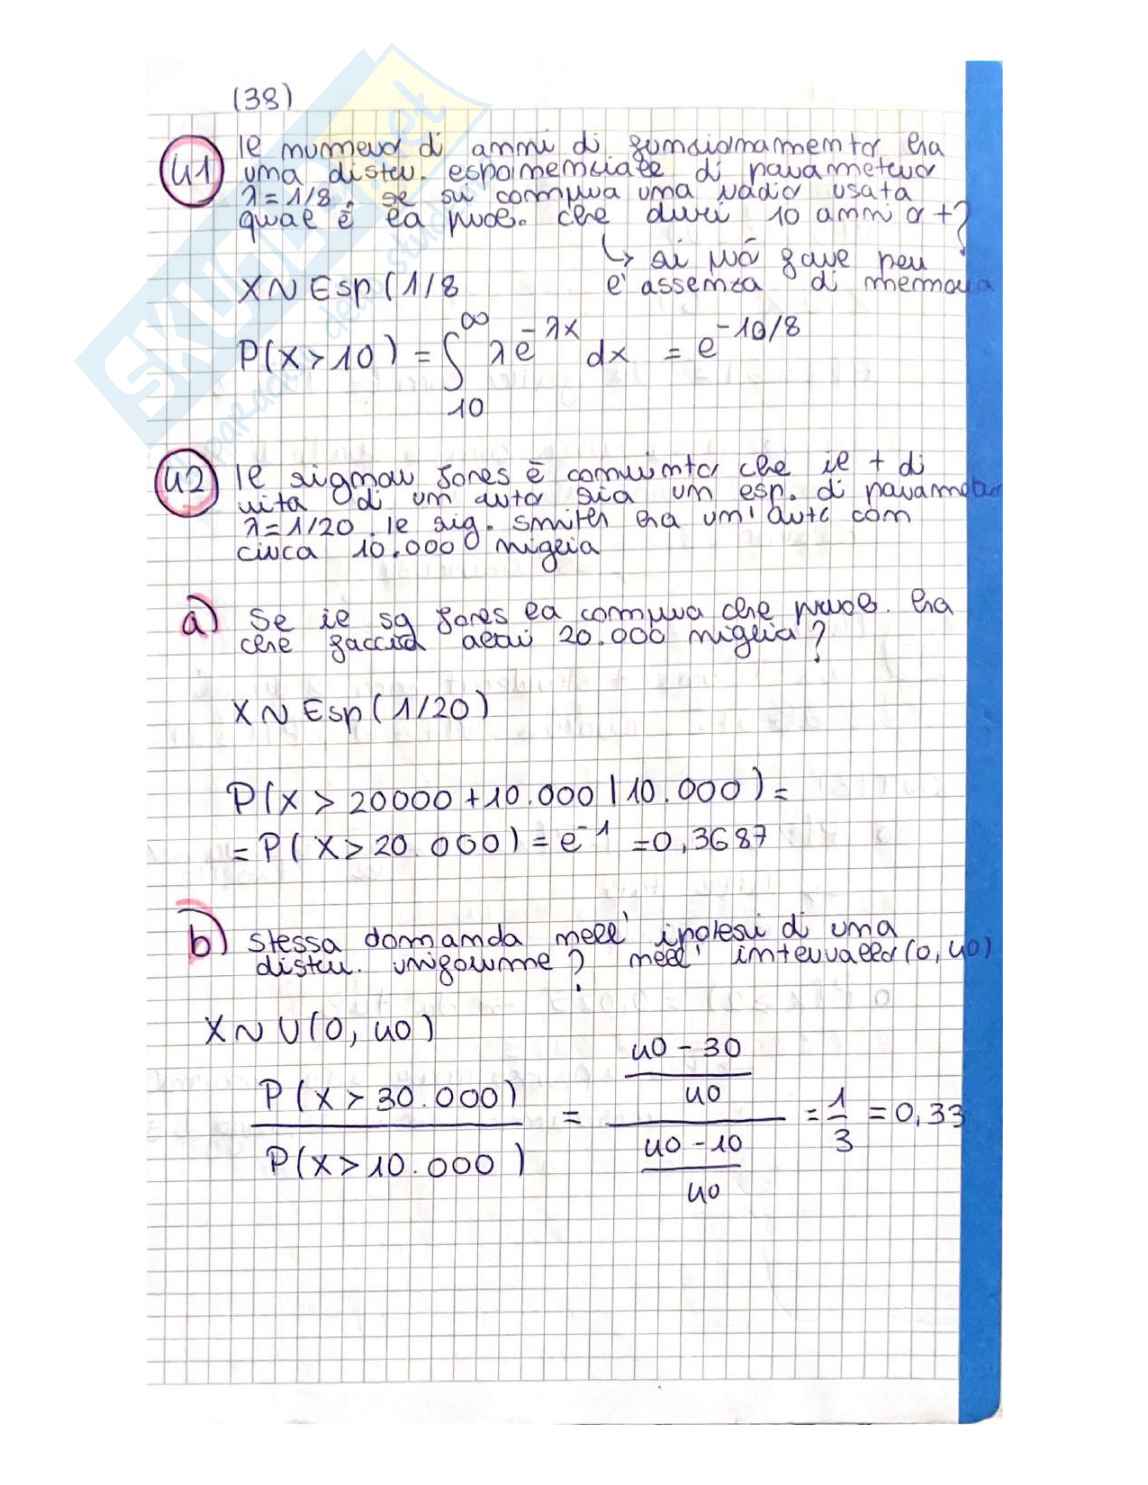 (38)
41) Il numero di anni di funzionamento ha
una distr. esponenziale di parametro
λ=1/8. se si compra una radio usata
qual è la prob. che duri 10 anni o +?
↳ si può fare per
l'assenza di memoria
X~Esp(1/8
P(X>10) = ∫₁₀^∞ λe^{-λx} dx = e^{-10/8}
42) Il signor Jones è convinto che il + di
vita di un auto sia un esp. di parametro
λ=1/20. Il sig. Smith ha un'auto con
circa 10.000 miglia
a) Se il sg Jones la compra che prob. ha
che faccia altri 20.000 miglia?
X~Esp(1/20)
P(X > 20000 +10.000 | 10.000) =
= P( X>20.000) = e^{-1} =0,3687
b) stessa domanda nell' ipotesi di una
distr. uniforme? nell' intervallo (0,40)
X~U(0,40)
P(X>30.000) / P(X>10.000) = ((40-30)/40) / ((40-10)/40) = 1/3 = 0,33
SKUOLA.net